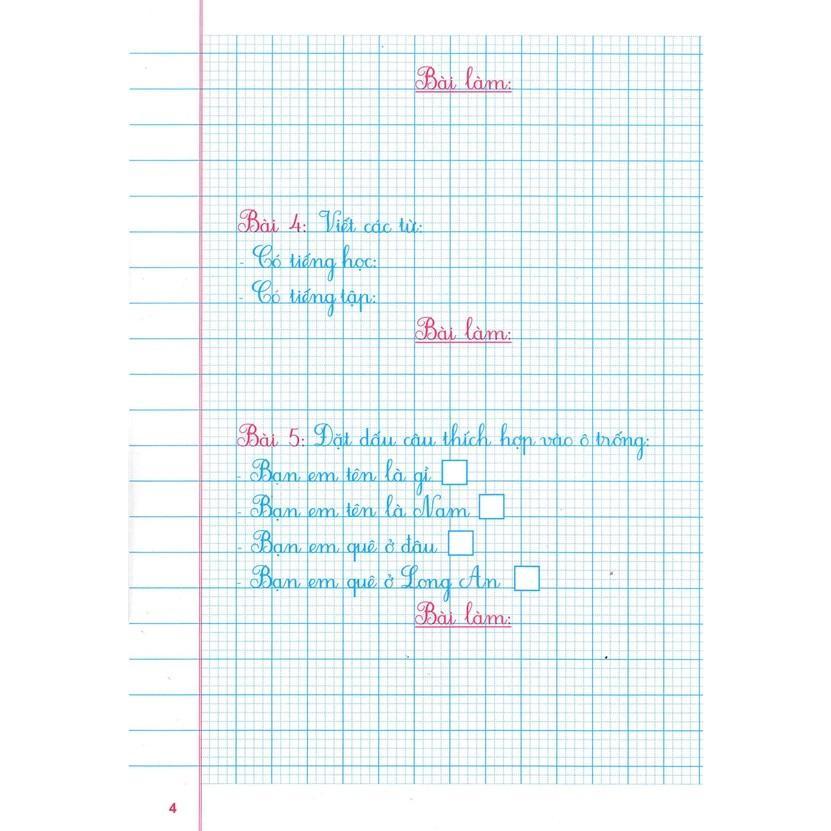 Bài làm:
Bài 4: Viết các từ:
- Có tiếng học:
- Có tiếng tập:
Bài làm:
Bài 5: Đặt dấu câu thích hợp vào ô trống:
- Bạn em tên là gỉ
- Bạn em tên là Nam
- Bạn em quê ở đâu
- Bạn em quê ở Long An
Bài làm:
4